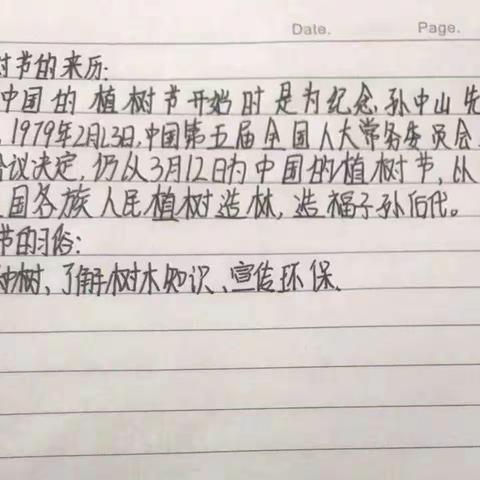 Date. Page.
树节的来历:
中国的植树节开始时是为纪念孙中山先
1979年2月23日,中国第五届全国人大常务委员会
会议决定,仍以3月12日为中国的植树节,以
全国各族人民植树造林,造福子孙后代。
节的习俗:
种树、了解树木知识、宣传环保、